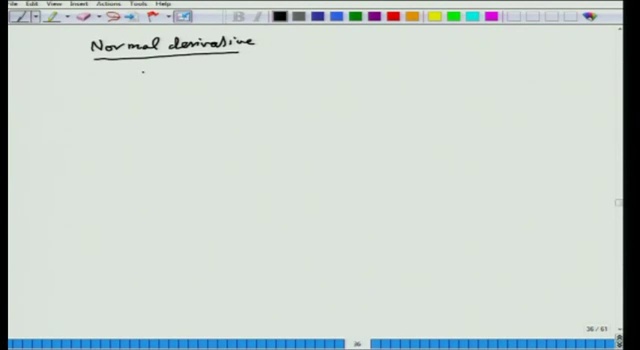 File Edit View Insert Actions Tools Help
Normal derivative
36 / 61
36